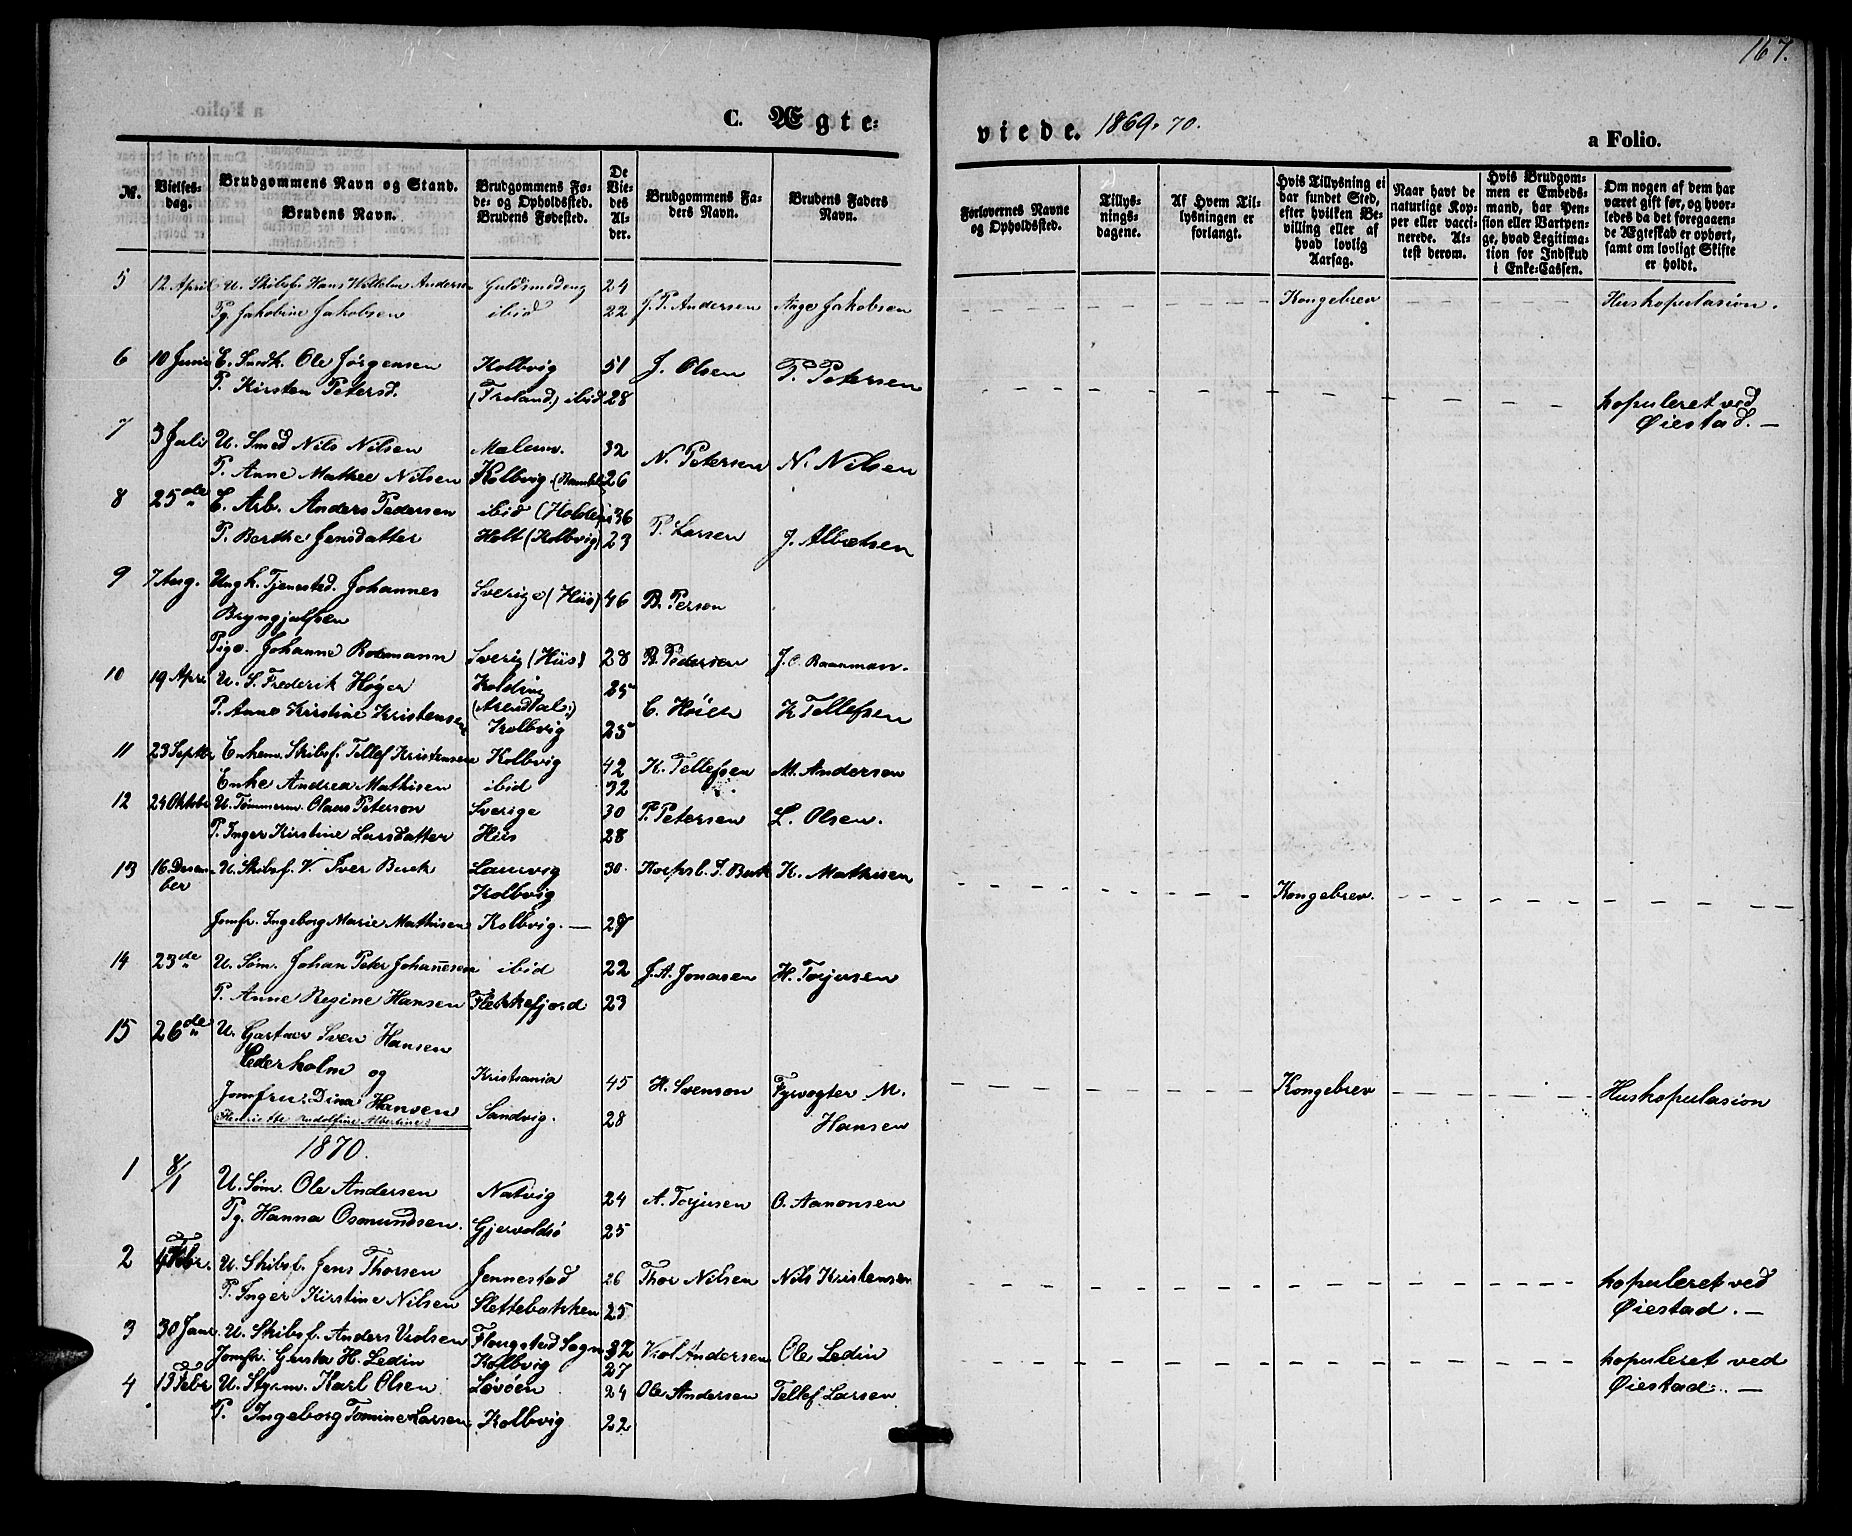 167.
C. Ægte-
viede. 1869. 70.
a Folio.
№.
Vielses-
dag.
Brudgommens Navn og Stand.
Brudens Navn.
Brudgommens Fø-
de- og Opholdssted.
Brudens Fødested.
De
Vie-
des
Al-
der.
Brudgommens Fa-
ders Navn.
Brudens Faders
Navn.
Forlovernes Navne
og Opholdssted.
Tillys-
nings-
dagene.
Af Hvem Til-
lysningen er
forlangt.
Hvis Tillysning ei
har fundet Sted,
efter hvilken Be-
villing eller af
hvad lovlig
Aarsag.
Naar havt de
naturlige Kop-
per eller vacci-
nerede. At-
test derom.
Hvis Brudgom-
men er Embeds-
mand, har Pen-
sion eller Vartpen-
ge, hvad Legitima-
tion for Indskud
i Enke-Cassen.
Om nogen af dem har
været gift før, og hvor-
ledes da det foregaaen-
de Ægteskab er ophørt,
samt om lovligt Skifte
er holdt.
5 12 April U. Skibsf. Hans Wilhelm Andersen Guldsmedeng 24 J. P. Andersen Aage Jakobsen Kongebrev Huskopulasion.
Pg. Jakobine Jakobsen ibid 22
6 10 Juni E. Ole Jörgensen Kolbvig 51 J. Olsen T. Petersen
P. Kirsten Petersd. (Froland.) ibid 28 kopuleret ved
Øiestad. —
7 3 Juli U. Smed Nils Nilsen 32 N. Petersen N. Nilsen
P. Anne Mathee Nilsen Kolbvig 26
8 25de E. Arb. Anders Pedersen ibid 36 P. Larsen J. Albretsen
P. Berthe Jensdatter Holt (Kolbvig) 23
9 7 Aug. Ungk. Johannes Sverige (Hiis) 46 B. Person
Bryngjulfsen
Pige. Johanne Sverig (Hiis) 28 B. Pedersen
10 19 Apri U. S. Frederik Høyer Kolding 25 K Tellefsen
(Arendal.)
P. Anne Kirstine Kristensen Kolbvig 25
11 23 Septbr Enkem. Skibsf. Tellef Kristensen Kolbvig 42 K. Tellefsen M. Andersen
Enke Andrea Mathisen ibid 32
12 24 Oktobr U. Tømmerm. Olaus Peterson Sverige 30 P. Petersen L. Olsen.
P. Inger Kirstine Larsdatter Hiis 28
13 16 Decem- U. Skibsf. V. Iver Laurvig 30 K. Mathisen Kongebrev.
ber Kolbvig
Jomfr. Ingeborg Marie Mathisen Kolbvig. —
14 23de U. Søm. Johan Peter Johanesen ibid 22 J. A. Jonasen H. Torjusen
P. Anne Regine Hansen Flekkefjord 23
15 26de U. Gartner Sven Hansen
Cederholm og Kristiania 45 H. Svenson Fyrvogter M. Kongebrev Huskopulasion
Jomfru: Dina Hansen Sandvig. 28 Hansen
(Henriette Rudolfine Albertine)
1870.
1 8/1 U. Søm. Ole Andersen Natvig 24 A. Torjusen O. Aanonsen
Pg. Hanna Osmundsen. Gjervoldsø 25
2 Febr. U. Skibsf. Jens Thorsen Jennestad 26 Thor Nilsen Nils Kristensen kopuleret ved
P. Inger Kirstine Nilsen Slettebakken 25 Øiestad. —
3 30 Janr U. Skibsf. Anders Sogn 32 Ole Ledin kopuleret ved
Jomfr. H. Ledin Kolbvig 27 Øiestad. —
4 13 Febr U. Styrm. Karl Olsen Løvøen 24 Ole Andersen Tellef Larsen
P. Ingeborg Tomine Larsen Kolbvig 22